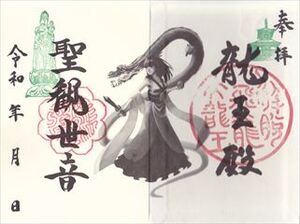 奉拝
龍王殿
八龍王
聖観世音
令和年月日